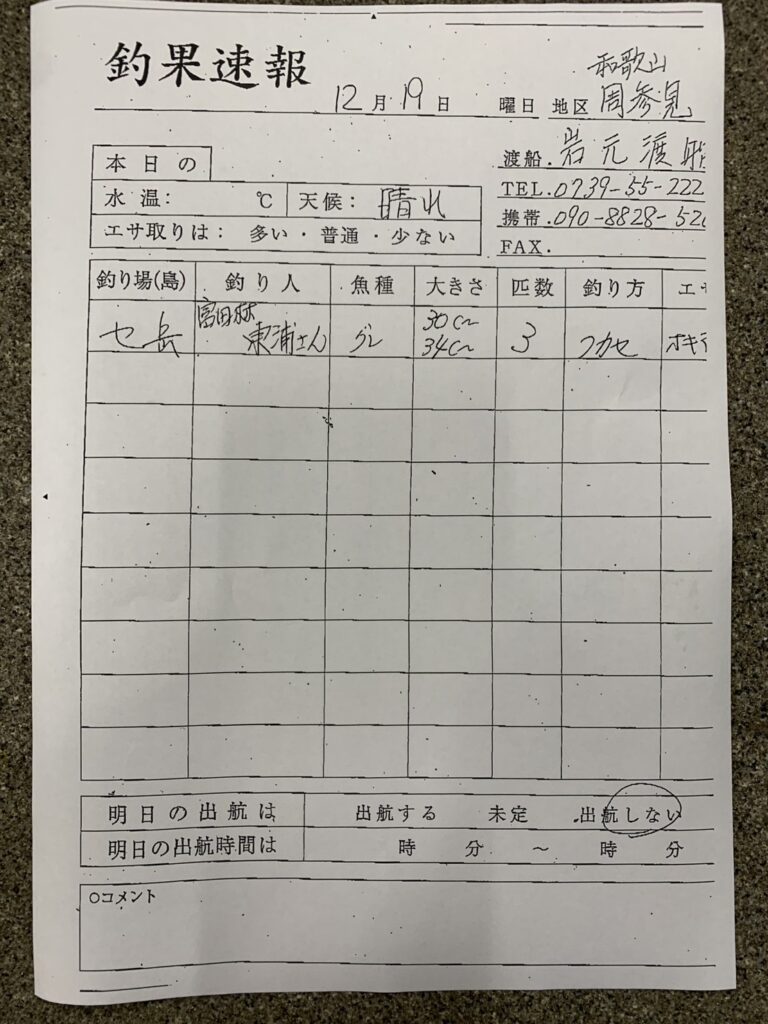 釣果速報
12月19日 曜日 地区 和歌山 周参見
渡船. 岩元渡船
TEL. 0739-55-222
携帯. 090-8828-52
FAX.
本日の
水温: ℃ 天候: 晴れ
エサ取りは: 多い・普通・少ない
釣り場(島) 釣り人 魚種 大きさ 匹数 釣り方 エサ
セ岳 富田林 東浦さん グレ 30㎝~34㎝ 3 フカセ オキア
明日の出航は 出航する 未定 出航しない
明日の出航時間は 時 分 ~ 時 分
○コメント